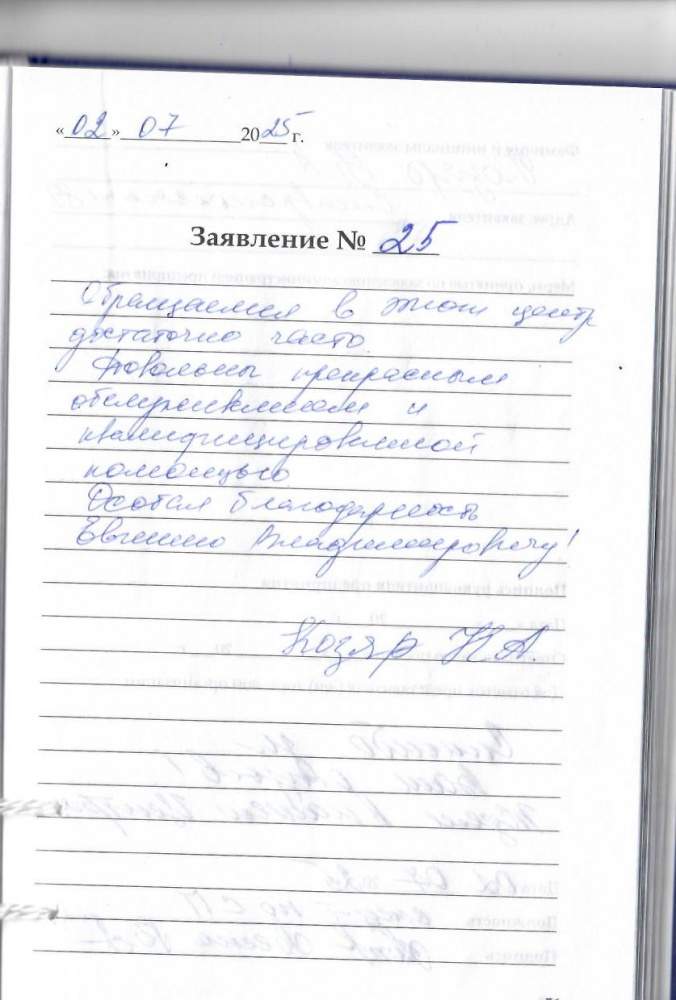 «02» 07 2025 г.
Заявление № 25
Обращаемся в этот центр
достаточно часто.
Довольны прекрасным
обслуживанием и
квалифицированной
помощью
Особая благодарность
Евгению Владимировичу!
Козяр Н А.